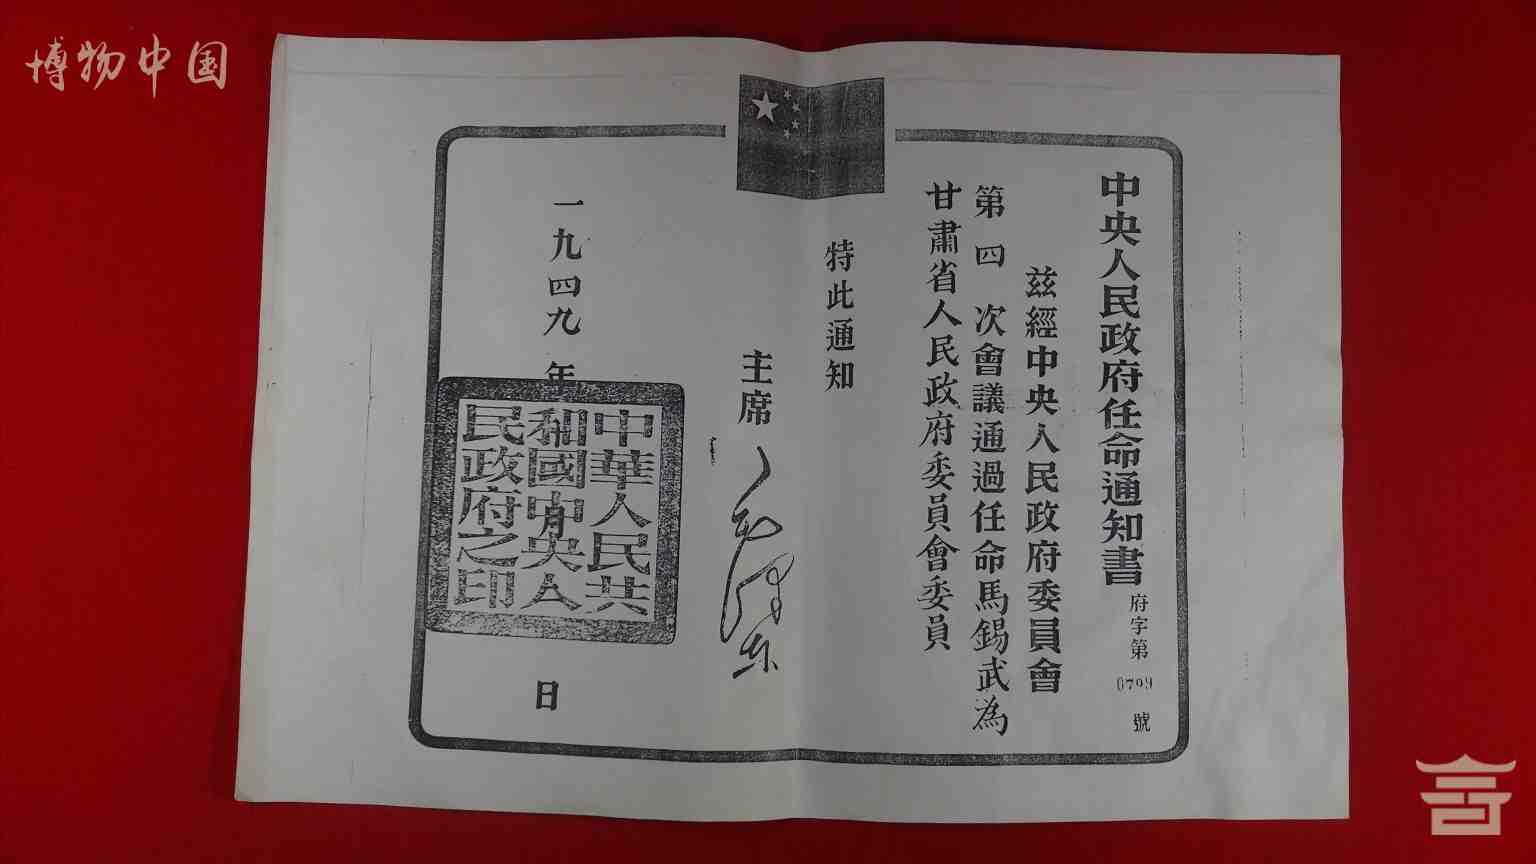 博物中国
中央人民政府任命通知書
府字第0799號
茲經中央人民政府委員會
第四次會議通過任命馬錫武為
甘肅省人民政府委員會委員
特此通知
主席 毛澤东
一九四九年 月 日
中華人民共
和國中央人
民政府之印